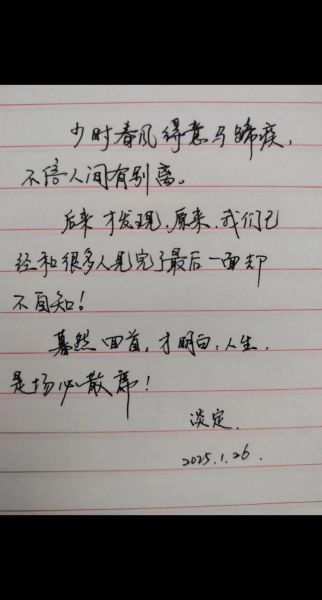 少时春风得意马蹄疾，
不信人间有别离。
后来才发现，原来，我们已
经和很多人见完了最后一面却
不自知！
蓦然回首，才明白：人生，
是场必散席！
淡定.
2025.1.26.